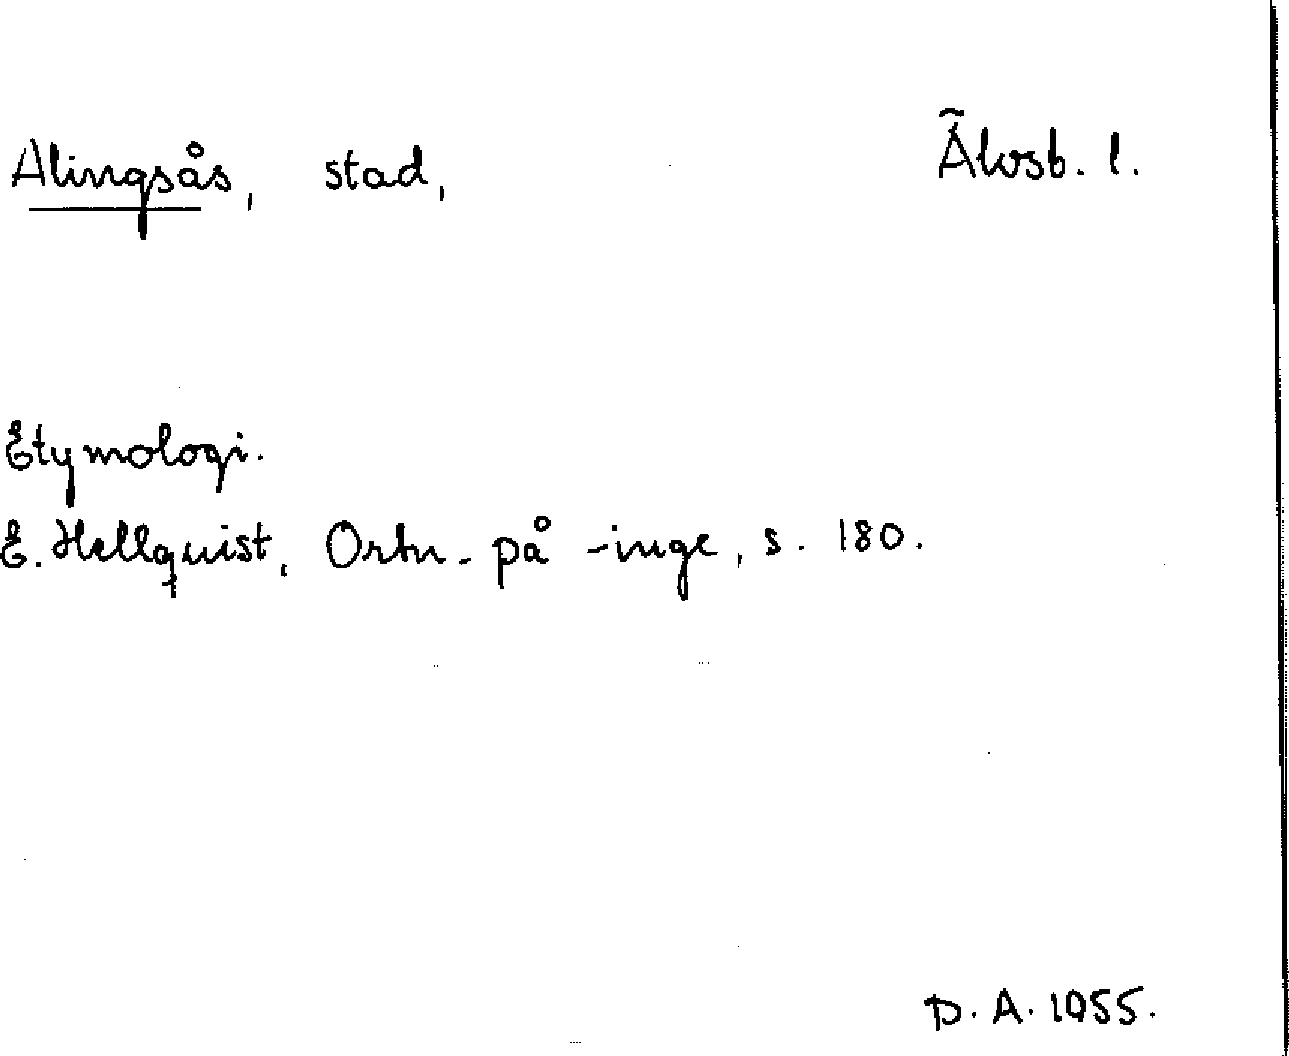 Alingsås, stad, Älvsb. l.
Etymologi.
E. Hellquist, Ortn. på -inge, s. 180.
D. A. 1055.